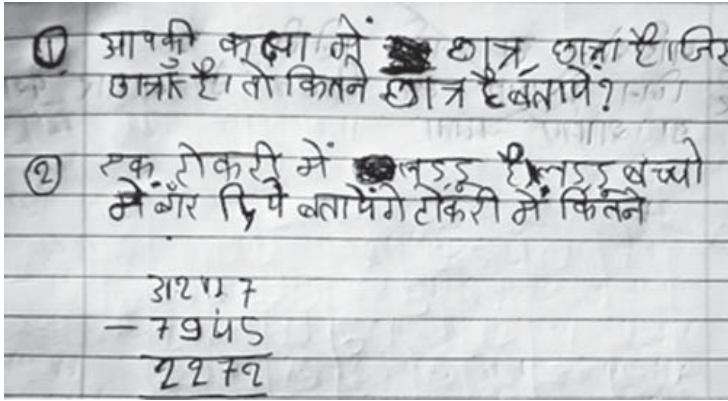 ① आपकी कक्षा में छात्र छात्रा है। जिस
छात्राएँ है। तो कितने छात्र है बताये?
② एक टोकरी में लड्डू है। लड्डू बच्चो
में बाँट दिये बतायेंगे टोकरी में कितने
- 7945
2272